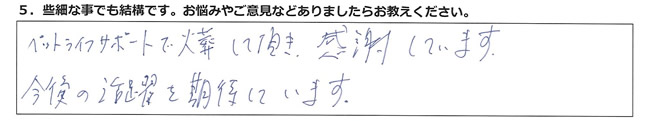 5．些細な事でも結構です。お悩みやご意見などありましたらお教えください。
ペットライフサポートで火葬して頂き、感謝しています。
今後の活躍を期待しています。